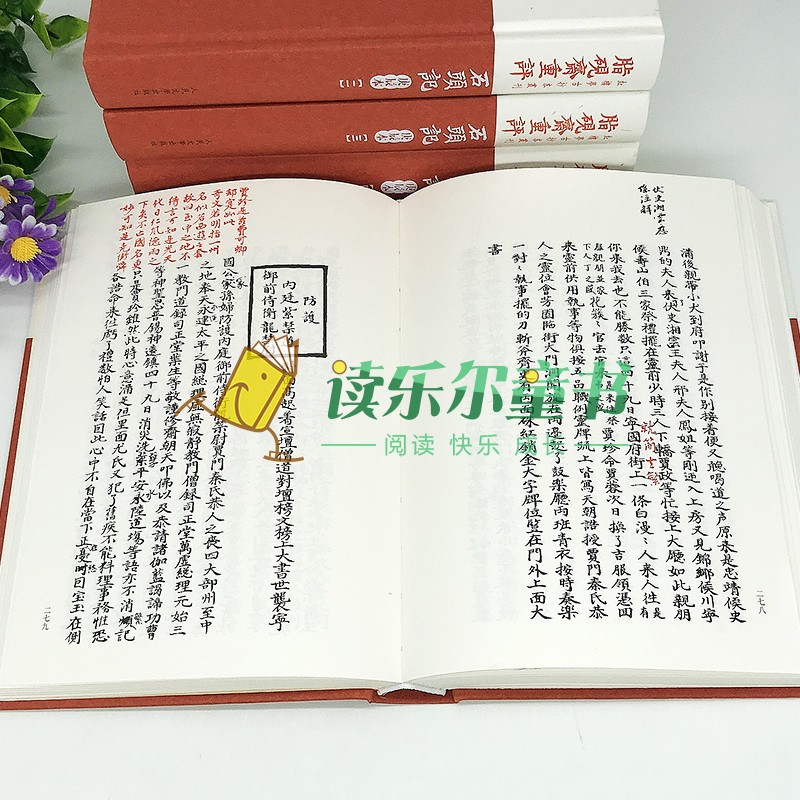 脂硯齋重評
石頭記
庚辰本
[二]
人民文學出版社
脂硯齋重評
石頭記
庚辰本
[三]
人民文學出版社
石頭記
伏史湘雲應
係注解
蒲後親帶小犬到府叩謝于是作別接着便又聽喝道之声原來是忠靖侯史
鼐的夫人來伏史湘雲王夫人邢夫人鳳姐等剛迎入上房又見錦鄉侯川寧
侯壽山伯三家祭禮擺在靈前少時三人下轎賈政等忙接上大廳如此親朋
你來我去也不能勝数只這四十九日寧國府街上一條白漫ミ人來人往是有
服親朋並家下人丁之盛花簇ミ官去官來賈珍命賈蓉次日換了吉服領憑回
來靈前供用執事等物俱按五品職例靈牌疏上皆寫天朝誥授賈門秦氏恭
人之靈位會芳園臨街大門洞開旋在兩邊起了鼓樂廳兩班青衣按時奏樂
一對ミ執事擺的刀斬斧齊更有兩面硃紅銷金大字牌位豎在門外上面大
書
二七八
防護
內廷紫禁
御前侍衛龍
高起着宣壇僧道對壇榜文榜上大書世襲寧
國公家孫婦防護內庭御前侍衛賈門秦氏恭人之喪四大部州至中
之地奉天永運太平之國総理虛無寂靜教門僧録司正堂萬虛総理元始三
一教門道録司正堂葉生等敬謹修齋朝天叩佛以及恭請諸伽藍謁諦功曹
等神聖恩普錫神遠鎮四十九日消灾洗業平安水陸道場等語亦不消煩記
只是賈珍雖然此時心意滿足但里面尤氏又犯了舊疾不能料理事務惟恐
各誥命來往虧了禮數怕人笑話因此心中不自在當下正憂時因宝玉在側
二七九
读乐尔童书
阅读 快乐 成长